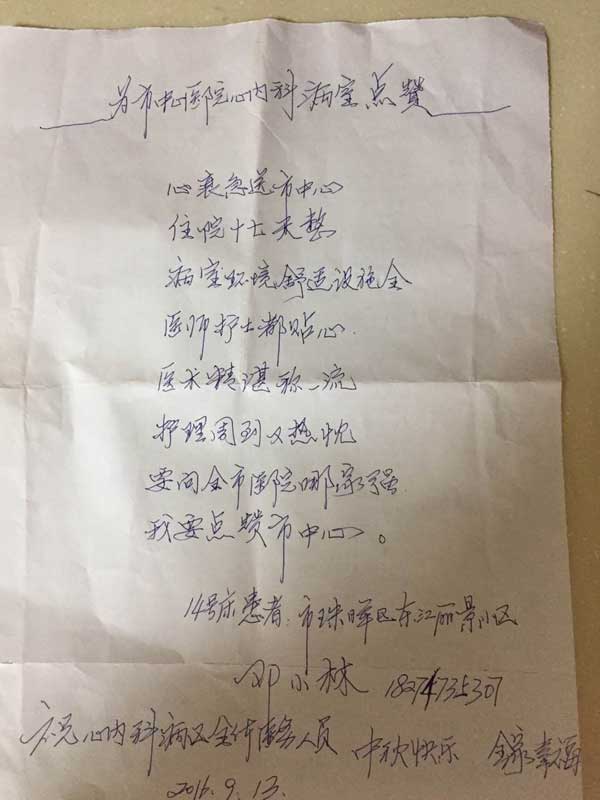 为市中心医院心内科病室点赞
心衰急送市中心
住院十七天整
病室环境舒适设施全
医师护士都贴心.
医术精湛称一流
护理周到又热忱
要问全市医院哪家强
我要点赞市中心。
14号床患者:市珠晖区东江丽景小区
邓小林 18274735307
祝心内科病区全体医务人员 中秋快乐 全家幸福
2016.9.13.